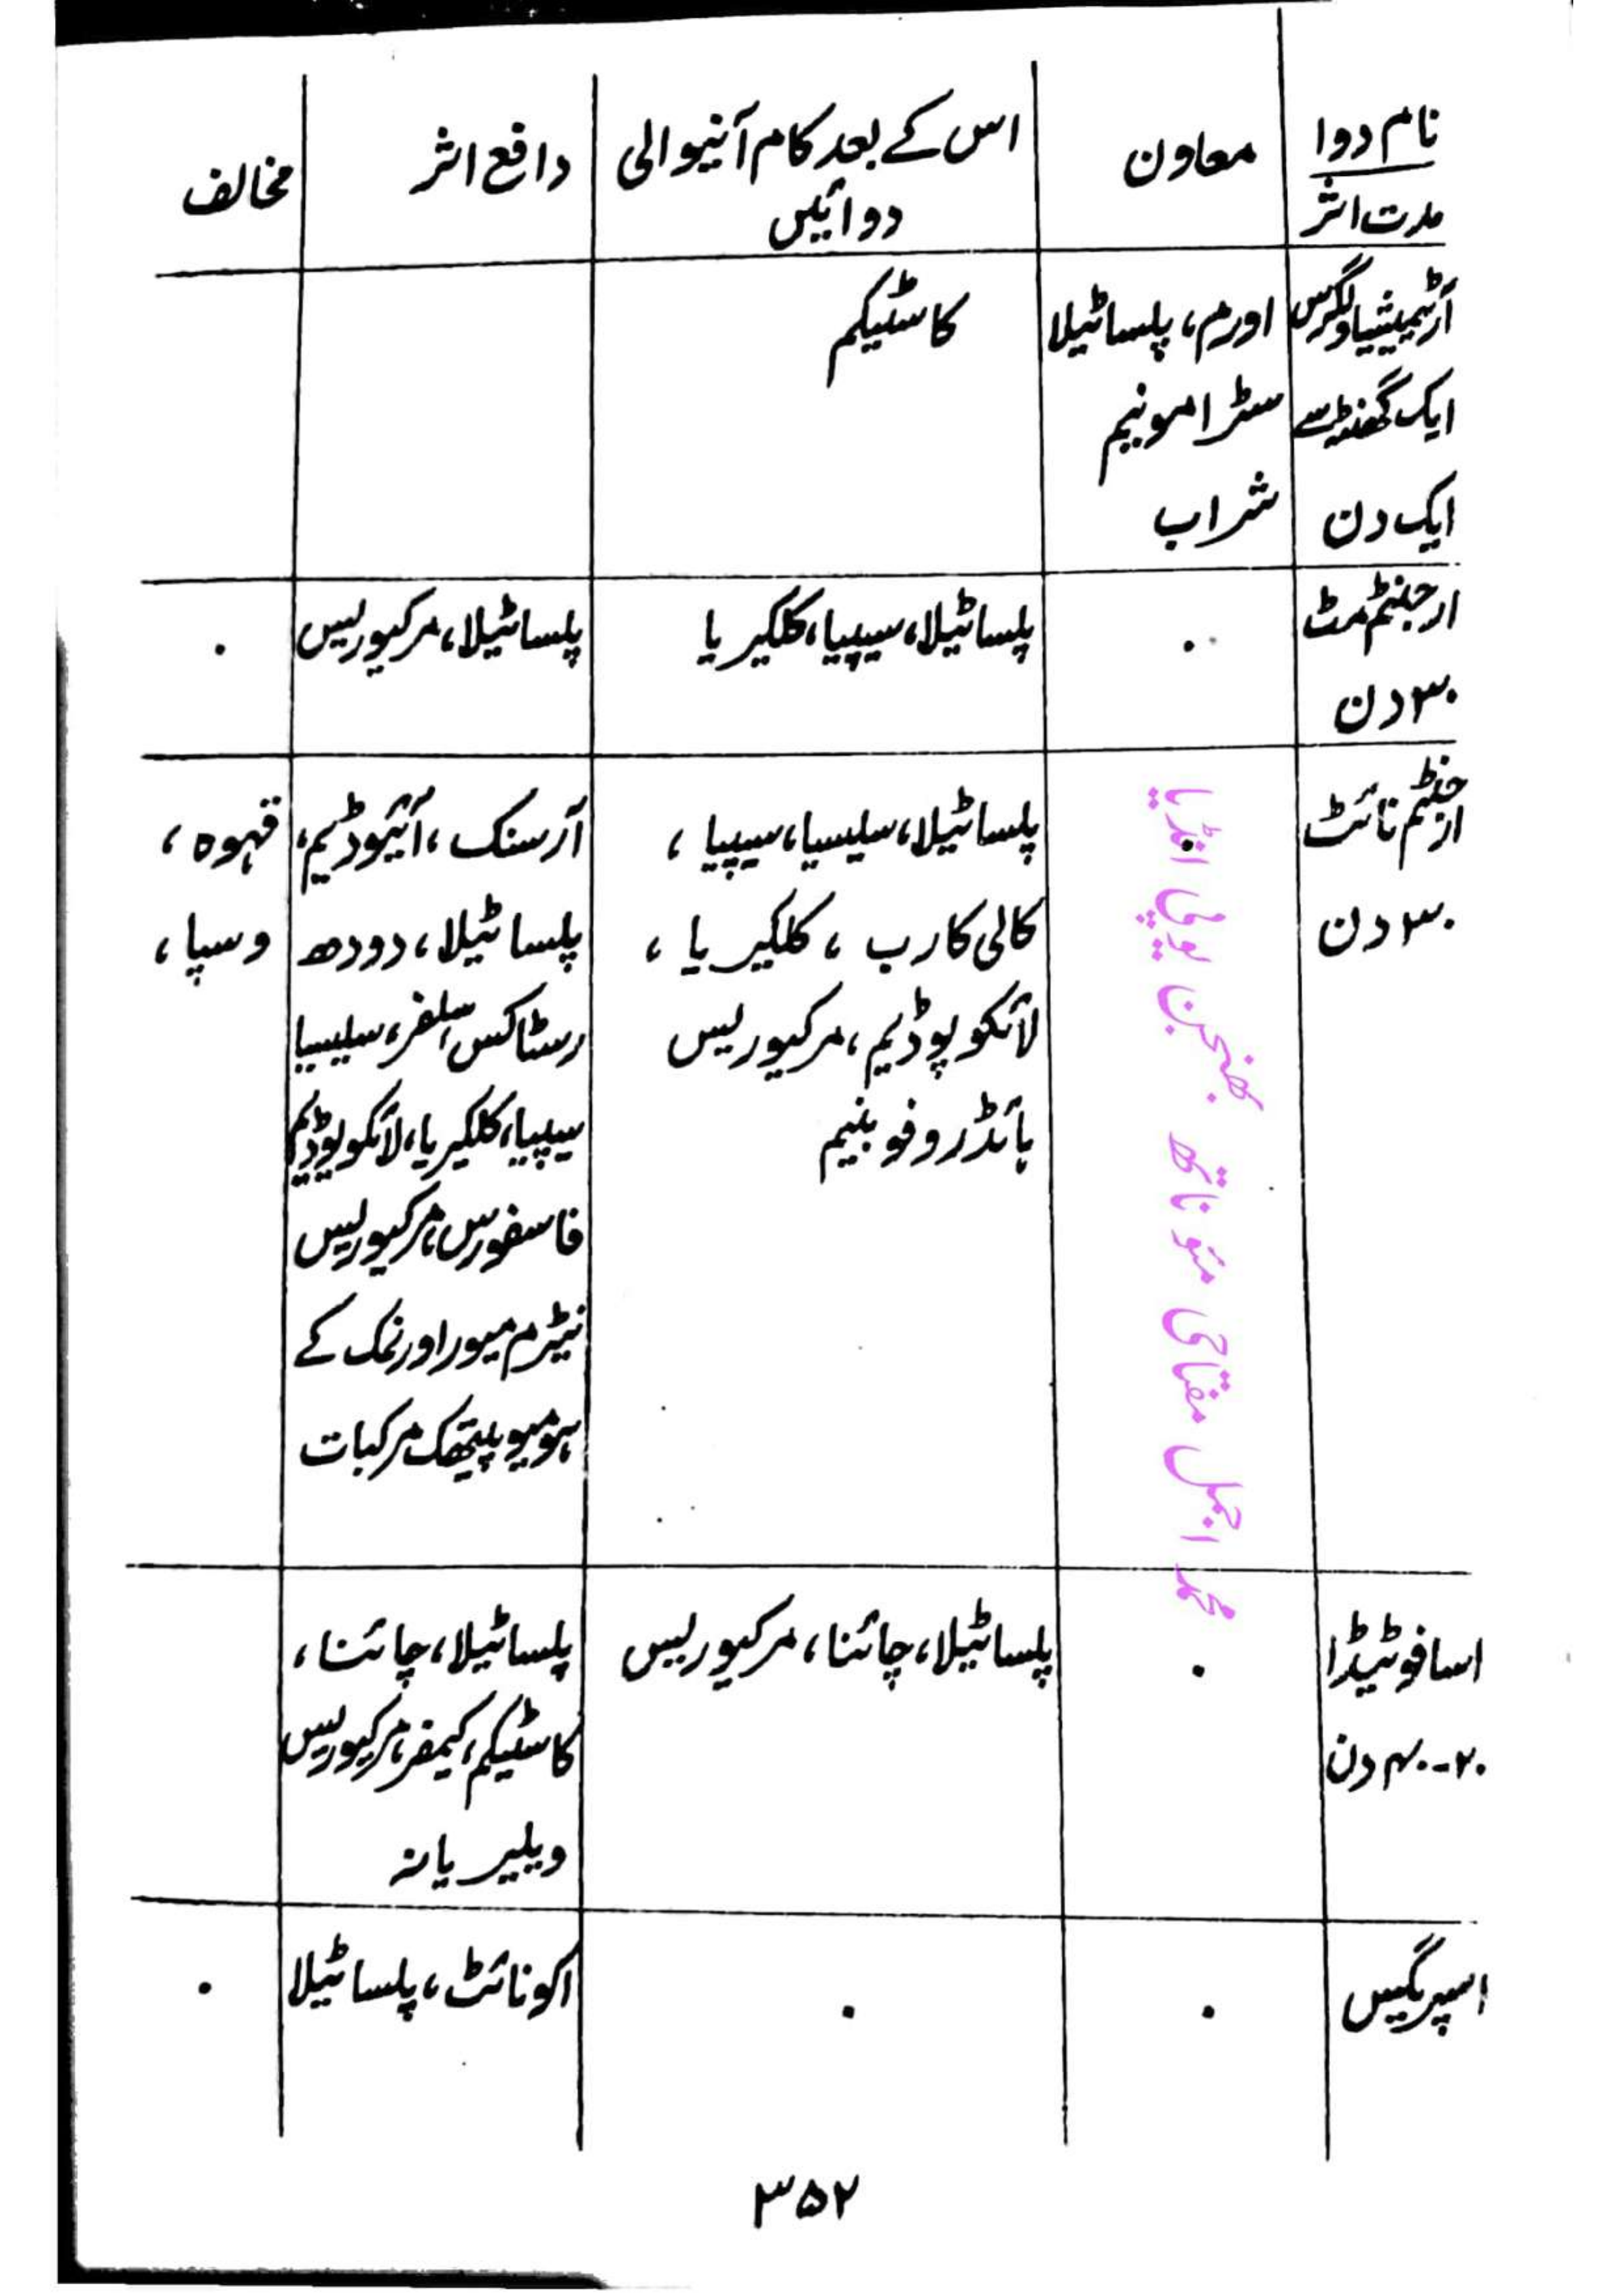 نام دوا
مدت اثر
معاون
اس کے بعد کام آنیوالی
دوائیں
دافع اثر
مخالف
آرٹیمیشیا ولگرس
ایک گھنٹہ سے
ایک دن
اورم، پلساٹیلا
سٹرامونیم
شراب
کاسٹیکم
ارجنٹم مٹ
۳۰ دن
پلساٹیلا، سیپیا، کلکیریا
پلساٹیلا، مرکیوریس
ارجنٹم نائٹ
۳۰ دن
پلساٹیلا، سلیسیا، سیپیا،
کالی کارب، کلکیریا،
لائکوپوڈیم، مرکیوریس
ہائڈروفوبنیم
آرسنک، آئیوڈیم،
پلساٹیلا، دودھ
رسٹاکس، سلفر، سلیسیا
سیپیا، کلکیریا، لائکوپوڈیم
فاسفورس، مرکیوریس
نیٹرم میور اور نمک کے
ہومیوپیتھک مرکبات
قہوہ،
وسپا،
اسافوٹیڈا
۲۰-۴۰ دن
پلساٹیلا، چائنا، مرکیوریس
پلساٹیلا، چائنا،
کاسٹیکم، کیمفر، مرکیوریس
ویلیریانہ
اسپریگیس
اکونائٹ، پلساٹیلا
محمد اجمل مفتاحی مئو ناتھ بھنجن یوپی انڈیا
۳۵۲